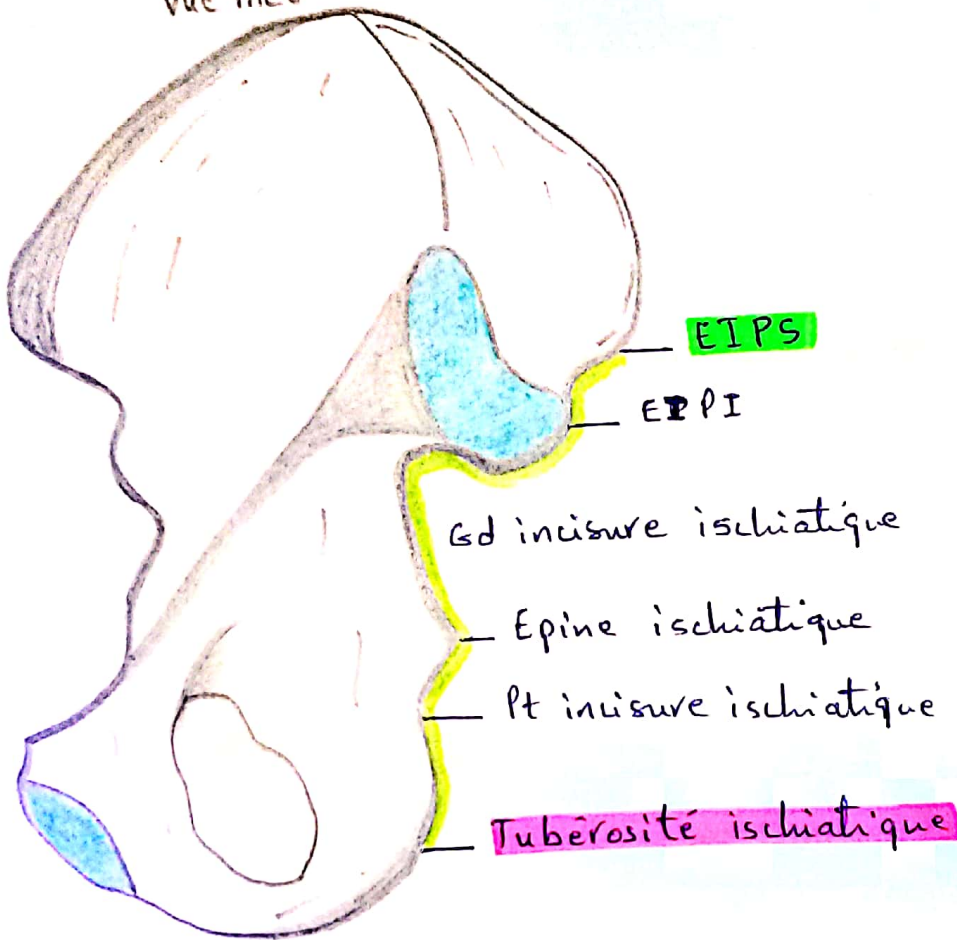 Vue
EIPS
EIPI
Gd incisure ischiatique
Epine ischiatique
Pt incisure ischiatique
Tubérosité ischiatique